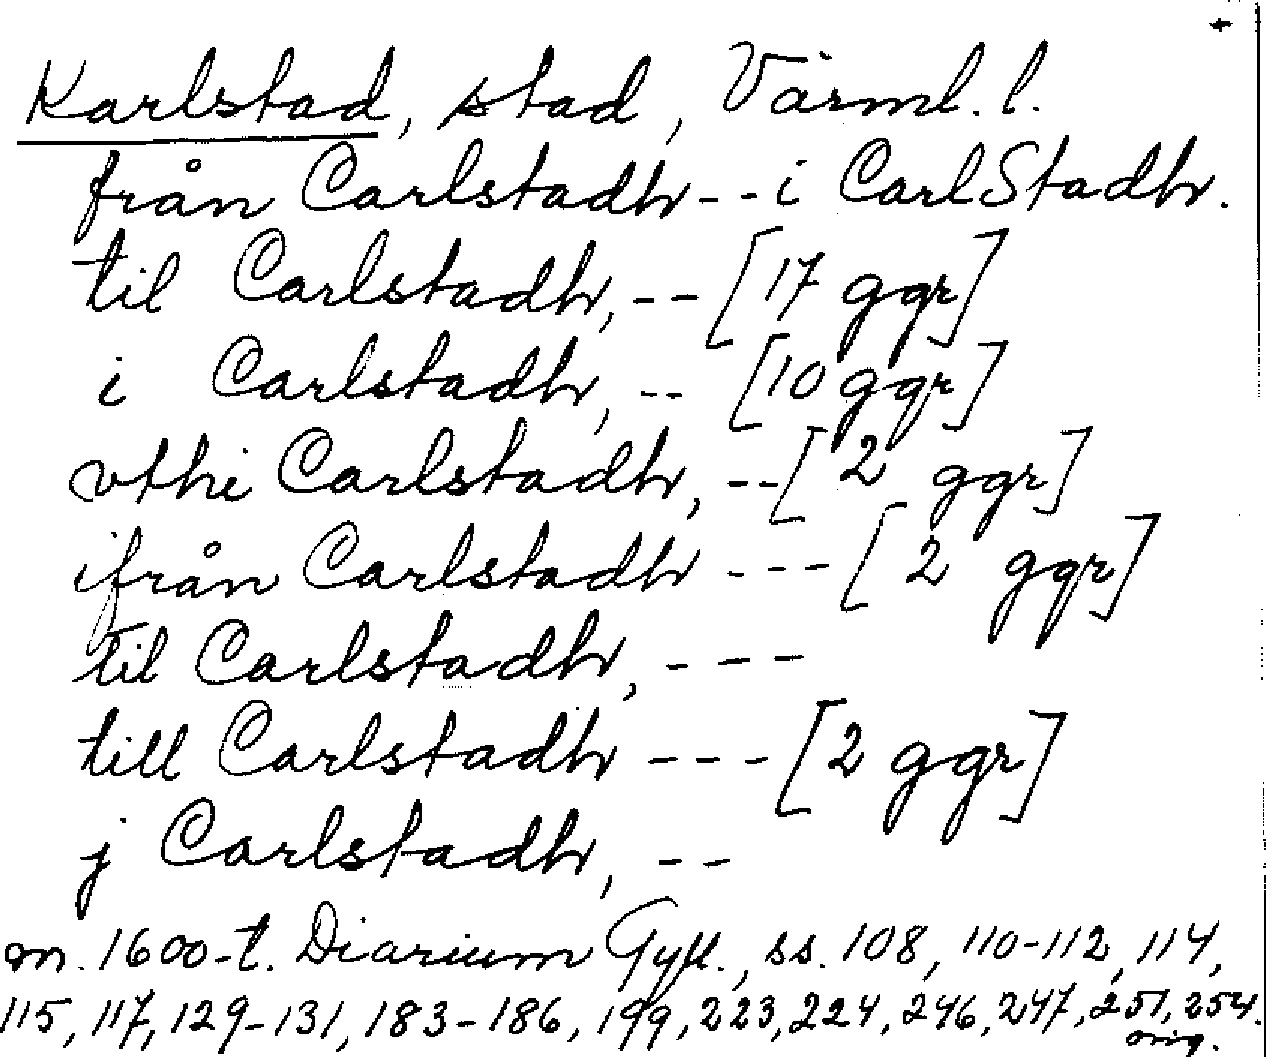 Karlstad, stad, Värml. l.
från Carlstadh -- i CarlStadh.
til Carlstadh, -- [17 ggr]
i Carlstadh, -- [10 ggr]
vthi Carlstadh, -- [2 ggr]
ifrån Carlstadh --- [2 ggr]
til Carlstadh, ---
till Carlstadh --- [2 ggr]
j Carlstadh, --
m. 1600-t. Diarium Gyll., ss. 108, 110-112, 114,
115, 117, 129-131, 183-186, 199, 223, 224, 246, 247, 251, 254.
orig.